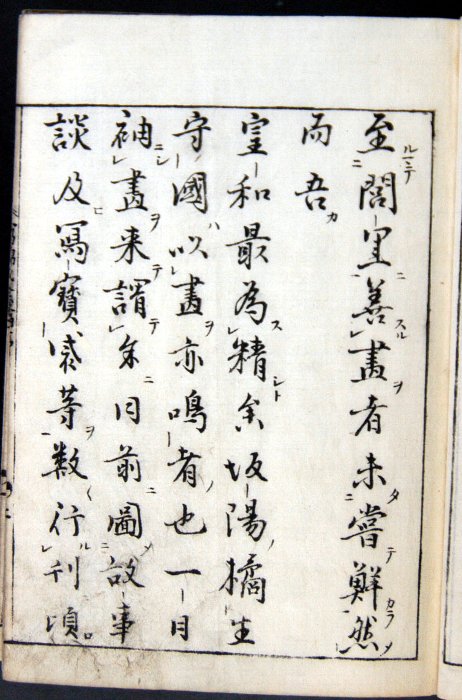 至閭里善畫者未嘗鮮然
而吾
皇和最為精矣坂陽橘生
守國以畫亦鳴者也一日
袖畫来謂余曰前圖故事
談及寫寳袋等數行刊頃